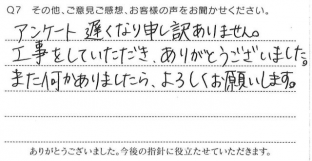 Q7 その他、ご意見ご感想、お客様の声をお聞かせください。
アンケート遅くなり申し訳ありません。
工事をしていただき、ありがとうございました。
また何かありましたら、よろしくお願いします。
ありがとうございました。今後の指針に役立たせていただきます。